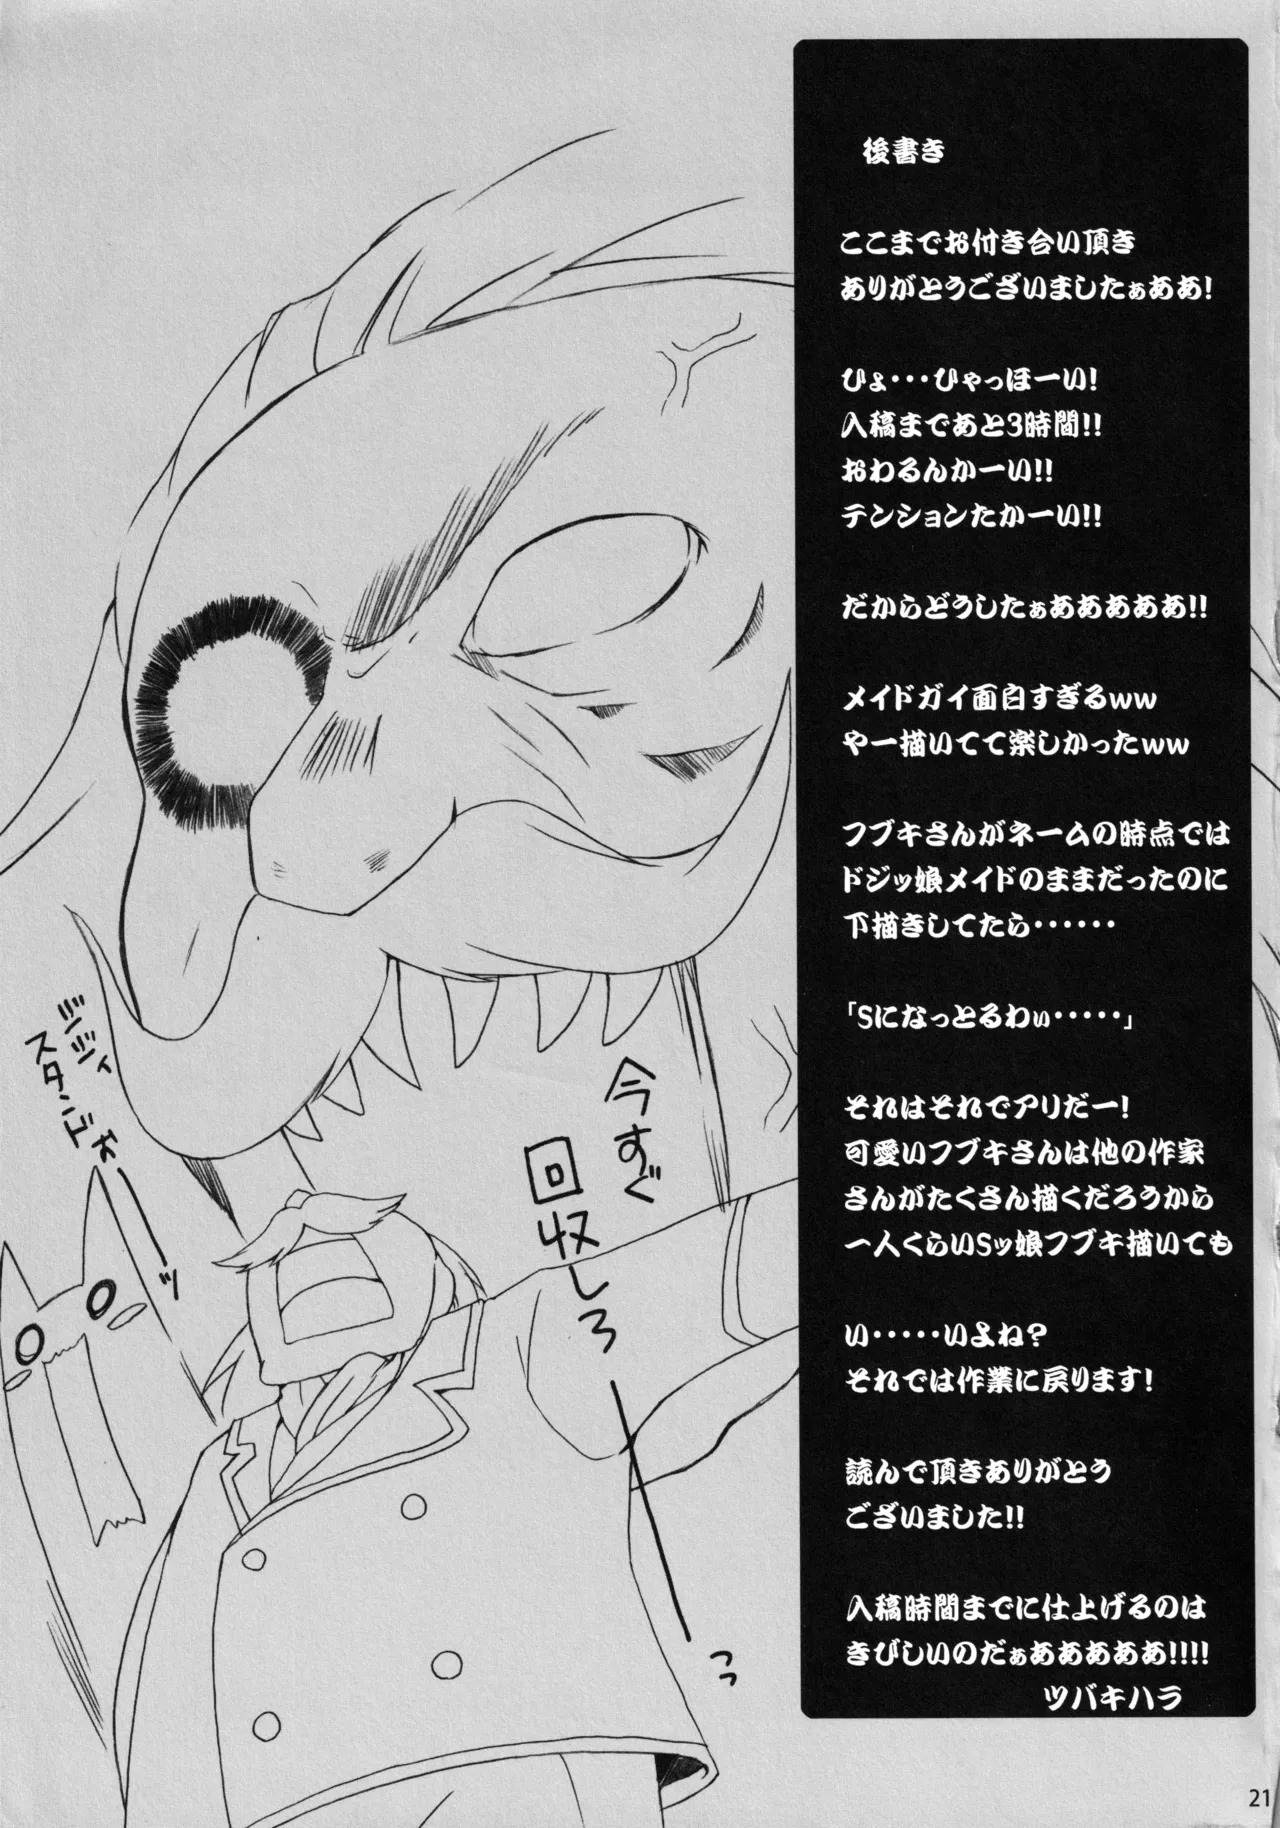 後書き
ここまでお付き合い頂き
ありがとうございましたぁああ!
ひょ・・・ひゃっほーい!
入稿まであと3時間!!
おわるんかーい!!
テンションたかーい!!
だからどうしたぁあああああ!!
メイドガイ面白すぎるww
やー描いてて楽しかったww
フブキさんがネームの時点では
ドジッ娘メイドのままだったのに
下描きしてたら・・・・・・
「Sになっとるわぃ・・・・・」
それはそれでアリだー!
可愛いフブキさんは他の作家
さんがたくさん描くだろうから
一人くらいSッ娘フブキ描いても
い・・・・・いよね?
それでは作業に戻ります!
読んで頂きありがとう
ございました!!
入稿時間までに仕上げるのは
きびしいのだぁあああああ!!!!
ツバキハラ
今すぐ
回収しろーっっ
21